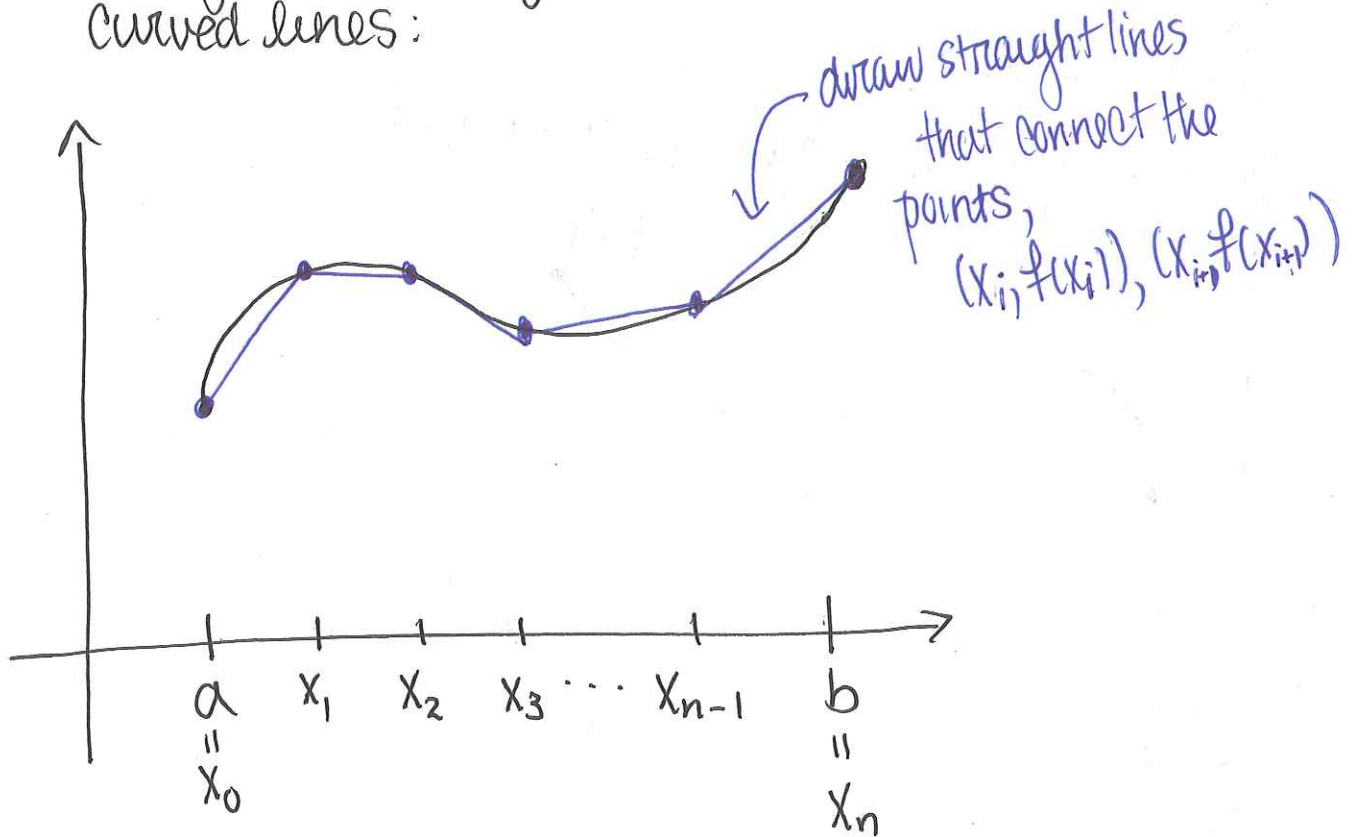 curved lines:
draw straight lines
that connect the
points,
(xᵢ, f(xᵢ)), (xᵢ₊₁, f(xᵢ₊₁))
a x₁ x₂ x₃ ... xₙ₋₁ b
= =
x₀ xₙ